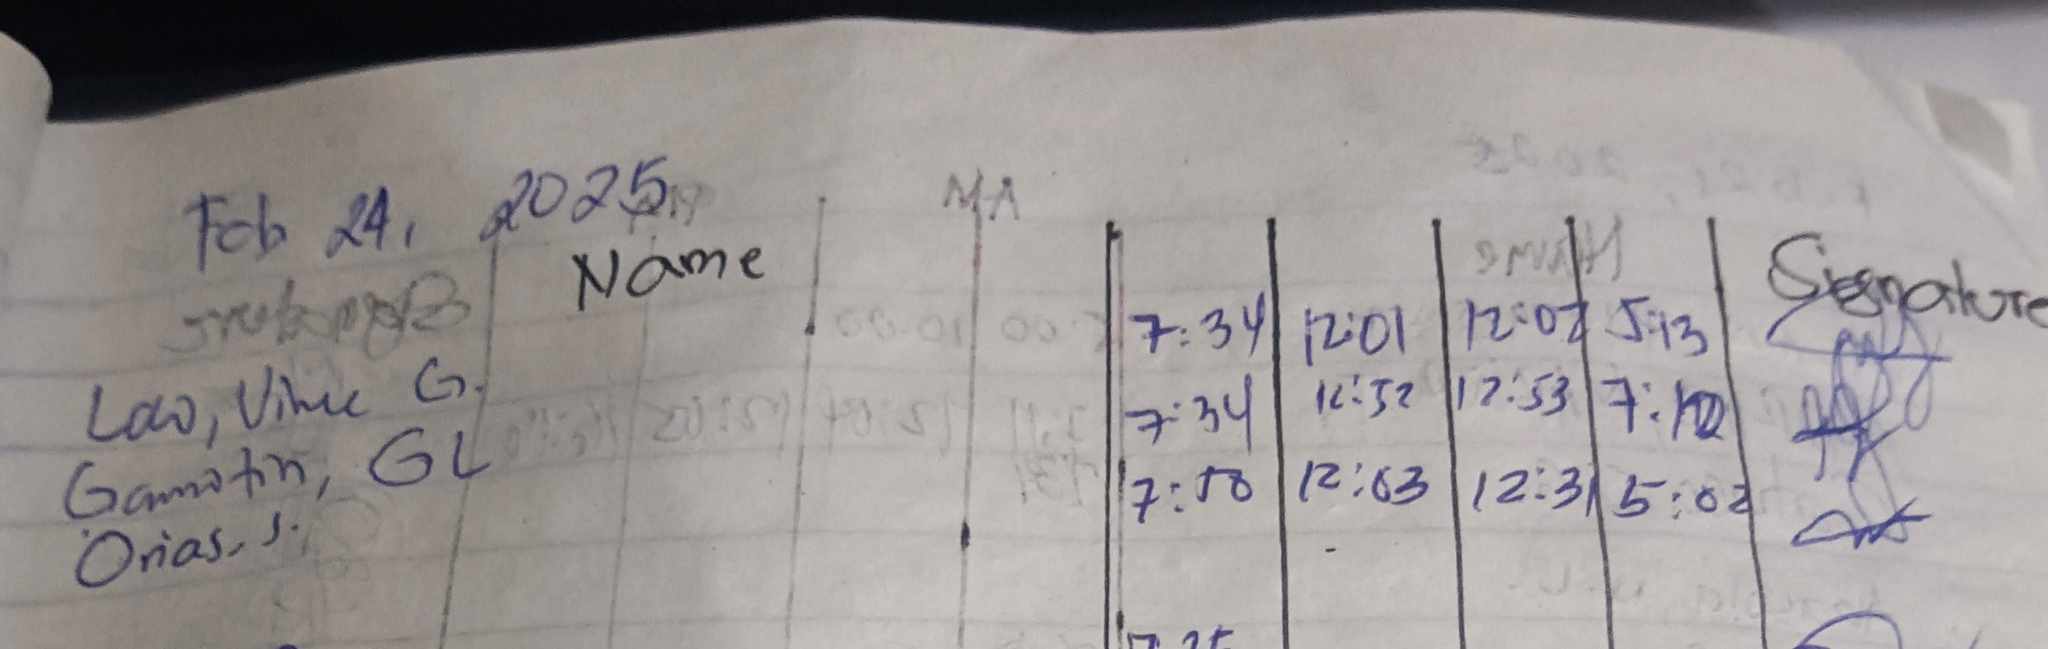 Feb 24, 2025
Name Signature
Lao, Vince G. 7:34 12:01 12:02 5:13
Gamotin, GL 7:34 12:53 7:12
Orias, J. 7:50 12:03 12:31 5:02